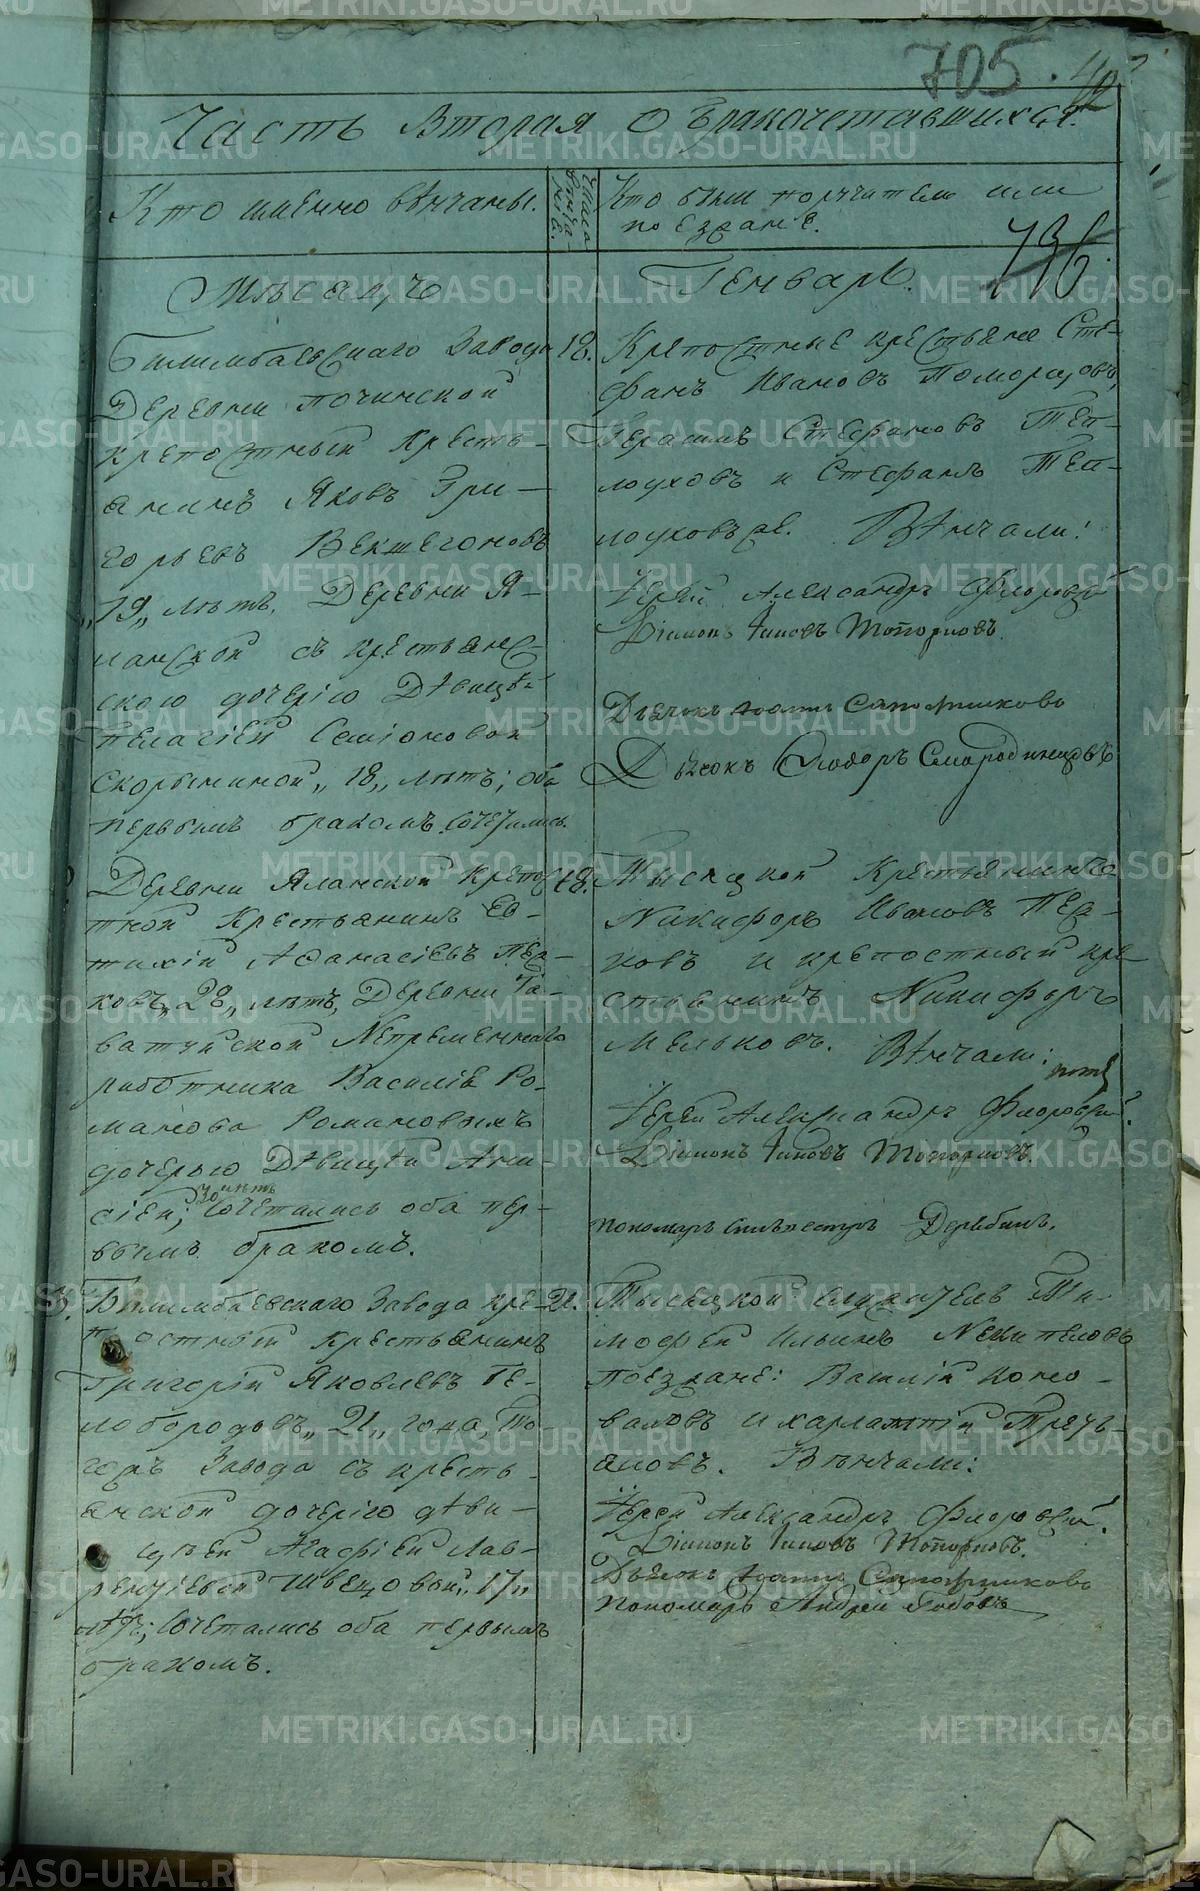 705. 40
Часть Вторая о бракочетавшихся.
Кто именно вѣнчаны.
Число вѣнчанiе.
Кто были порѹчители или
поезжанѣ.
136.
Мѣсяцъ
Генварь.
Билимбаевскаго Завода
Деревни починской
крепостный кресть-
янинъ Яковъ Гри-
горьевъ Векшегоновъ
„19„ лѣтъ, Деревни Я-
ланской съ крестьянс-
кою дочерiю Дѣвицѣй
Пелагiей Семiоновой
Скорыниной„ 18„ лѣтъ; оба
первымъ бракомъ сочетались.
18.
Крепостные крестьяне Сте-
фанъ Ивановъ Поморцовъ,
Герасимъ Стефановъ Теп-
лоуховъ и Стефанъ Теп-
лоуховъ же. Вѣнчали:
Iерей Александръ Флоровскiй
Дiаконъ Iаковъ Топорковъ.
Дьячокъ Iоаннъ Сапожниковъ
Дьячокъ Ѳеодоръ Смородинцовъ
Деревни Яланской Крепос-
тной Крестьянинъ Ев-
тихiй Афанасiевъ Пер-
ковъ „28„ лѣтъ, Деревни Та-
ватуйской Непременнаго
работника Василiя Ро-
манова Романовыхъ
дочерью Дѣвицѣй Ани-
сiей; 30 лѣтъ Сочетались оба пер-
вымъ бракомъ.
18.
Тысяцкой Крестьянинъ
Никифоръ Ивановъ Пер-
ковъ и крепостный кре-
стьянинъ Никифоръ
Мельковъ. Вѣнчали:
Iерей Александръ Флоровскiй
Дiаконъ Iаковъ Топорковъ.
пономарь Сильвестръ Дерябинъ.
3.
Билимбаевскаго Завода кре-
постный крестьянинъ
Григорiй Яковлевъ Бе-
лобородовъ„ 21„ года, То-
гожъ Завода съ кресть-
янской дочерiю дѣви-
цѣей Агафiей Лав-
рентiевой Швецовой„ 17„
лѣтъ; Сочетались оба первымъ
бракомъ.
21.
Тысяцкой служитель Ти-
мофей Ильинъ Некипеловъ
поезжане: Василiй Коно-
валовъ и харлампiй Треть-
яковъ. Вѣнчали:
Iерей Александръ Флоровскiй.
Дiаконъ Iаковъ Топорковъ.
Дьячокъ Iоаннъ Сапожниковъ
пономарь Андрей
METRIKI.GASO-URAL.RU